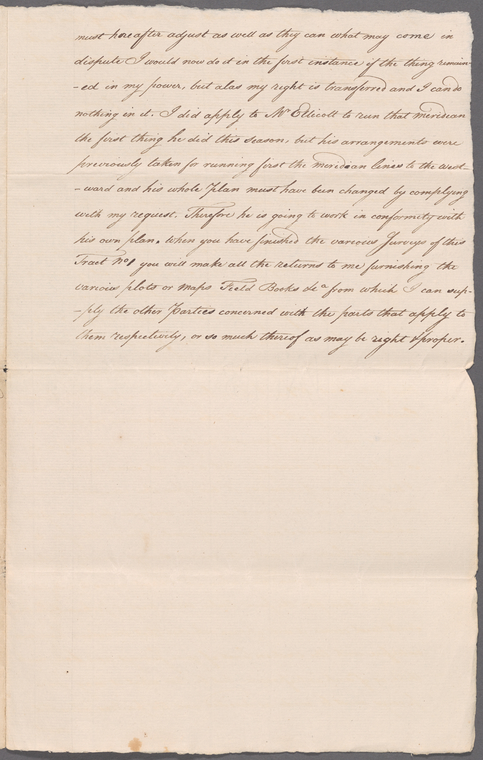 must hereafter adjust as well as they can what may come in
dispute I would now do it in the first instance if the thing remain-
-ed in my power, but alas my right is transferred and I can do
nothing in it. I did apply to Mr Ellicott to run that meridian
the first thing he did this season, but his arrangements were
previously taken for running first the meridian lines to the west-
-ward and his whole plan must have been changed by complying
with my request. Therefore he is going to work in conformity with
his own plan. When you have finished the various Surveys of this
Tract No 1 you will make all the returns to me furnishing the
various plots or maps Field Books &c from which I can sup-
-ply the other Parties concerned with the parts that apply to
them respectively, or so much thereof as may be right & proper.